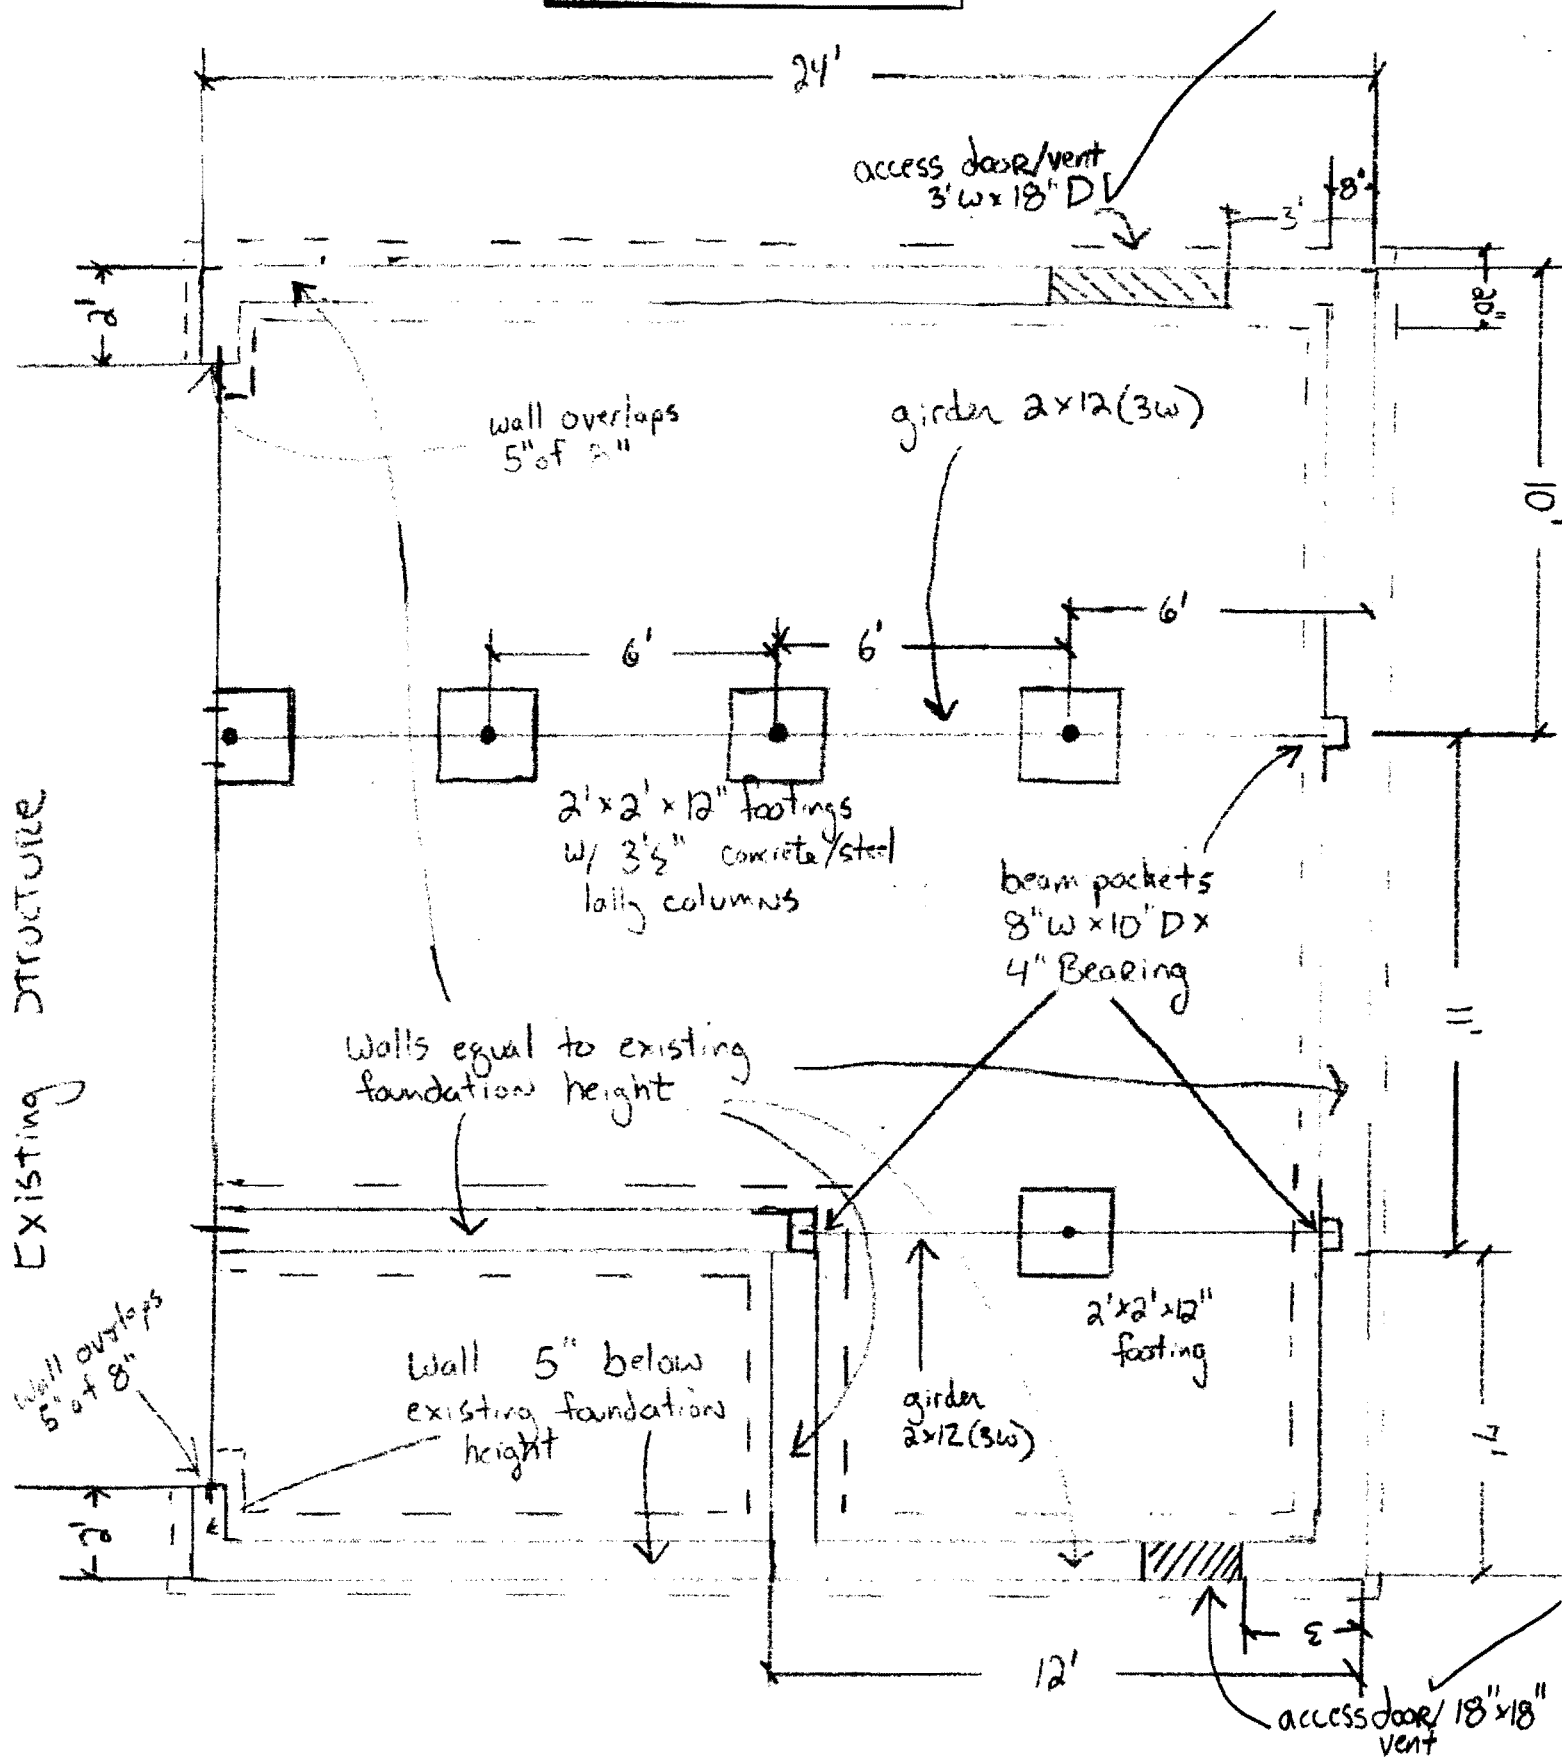 24'
access door/vent
3'w x 18" D
8"
3'
2'
20"
wall overlaps
5" of
girder 2x12(3w)
10'
6'
6'
6'
2' x 2' x 12" footings
w/ 3½" concrete/steel
lally columns
beam pockets
8" W x 10" D x
4" Bearing
11'
Existing STRUCTURE
Walls equal to existing
foundation height
2'x2'x12"
footing
Wall overlaps
5" of 8"
Wall 5" below
existing foundation
height
girder
2x12(3w)
7'
2'
3
12'
access door/ 18"x18"
vent